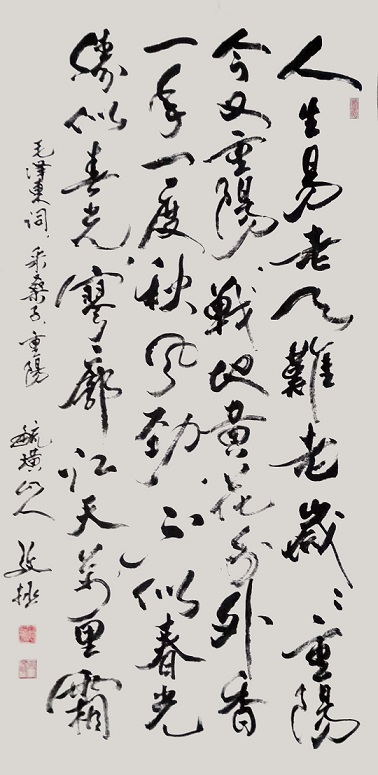 人生易老天難老歲〻重陽
今又重陽戰地黃花分外香
一年一度秋风勁不似春光
勝似春光寥廓江天萬里霜
毛泽東词采桑子重陽 山人